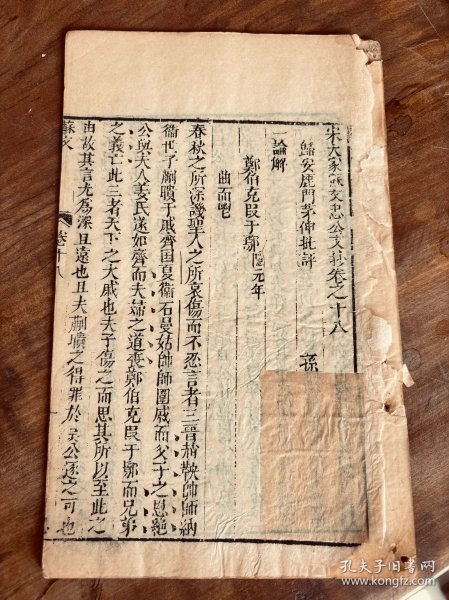 宋大家蘇文忠公文抄卷之十八
歸安鹿門茅坤批評
孫
論解
鄭伯克段于鄢 隱元年
曲而鬯
春秋之所深譏聖人之所哀傷而不忍言者三晉趙鞅帥師納
衞世子蒯聵于戚齊國夏衞石曼姑帥師圍戚而父子之恩絶
公與夫人姜氏遂如齊而夫婦之道喪鄭伯克段于鄢而兄弟
之義亡此三者天下之大戚也夫子傷之而思其所以至此之
由故其言尤爲深且遠也且夫蒯聵之得罪於靈公逐之可也
蘇文
卷十八
孔夫子旧书网
www.kongfz.com